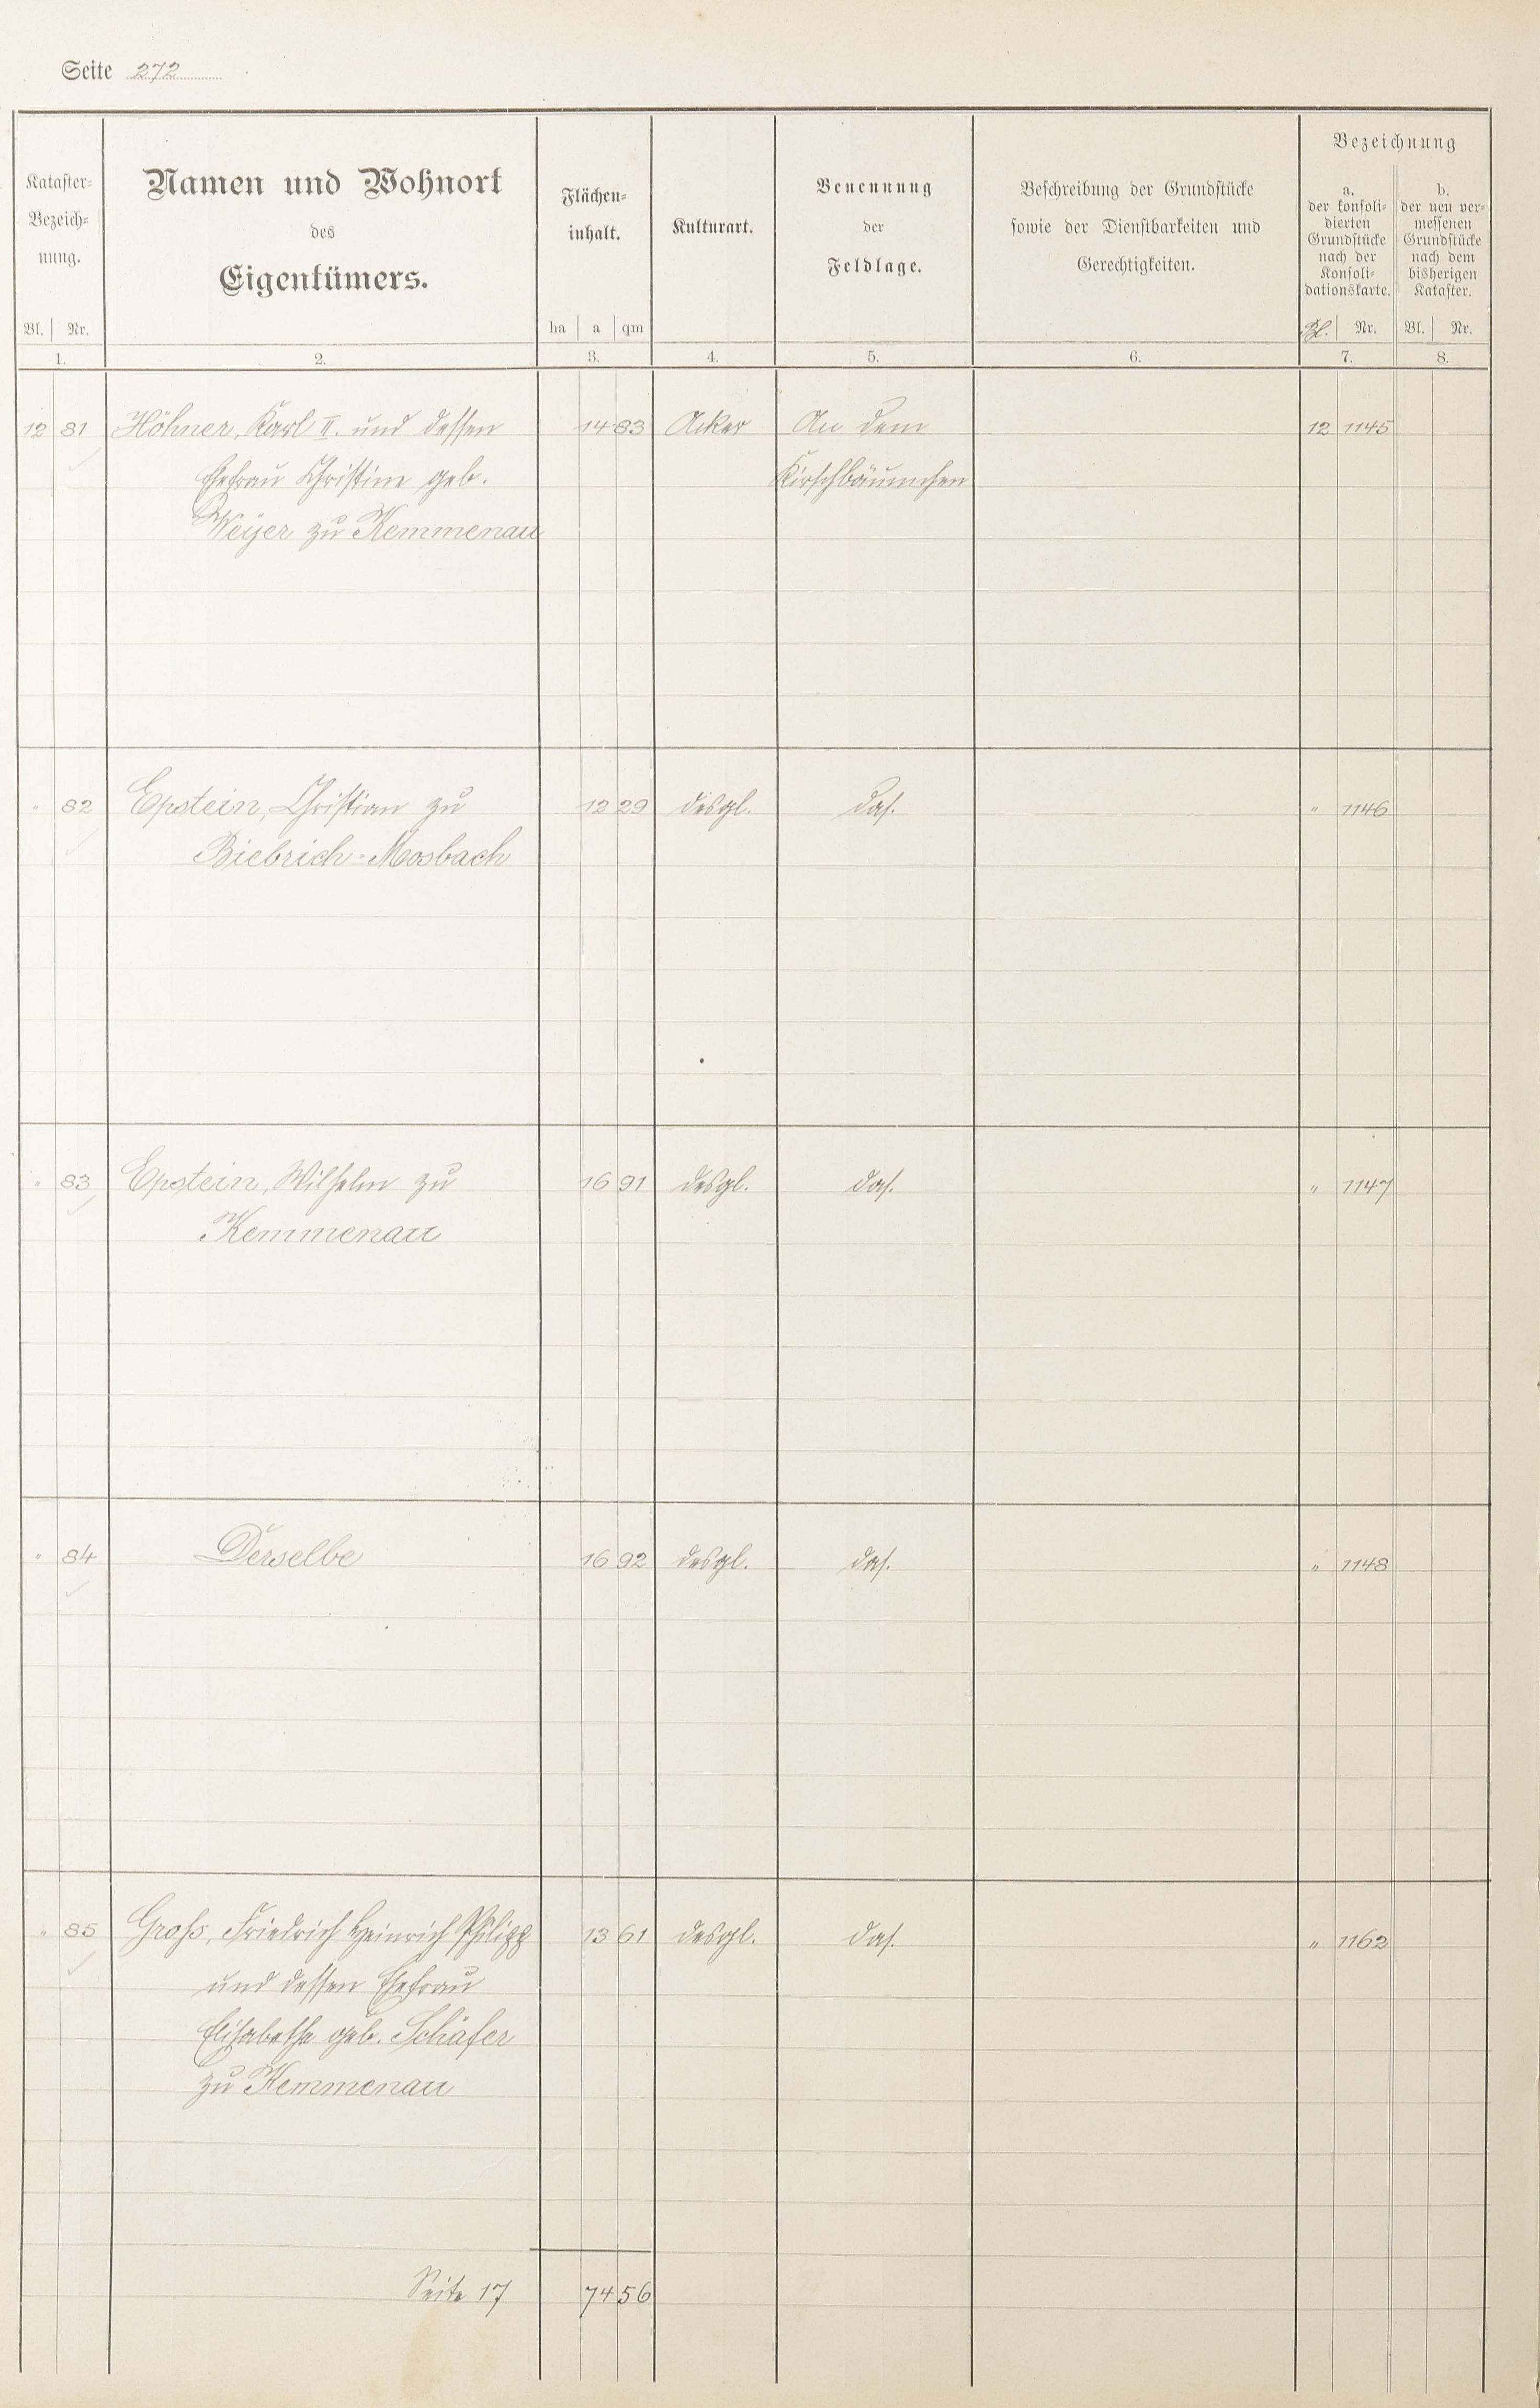 Seite 272
Kataster-
Bezeich-
nung.
Bl. Nr.
1.
Namen und Wohnort
des
Eigentümers.
2.
Flächen-
inhalt.
ha a qm
3.
Kulturart.
4.
Benennung
der
Feldlage.
5.
Beschreibung der Grundstücke
sowie der Dienstbarkeiten und
Gerechtigkeiten.
6.
Bezeichnung
a.
der konsoli-
dierten
Grundstücke
nach der
Konsoli-
dationskarte.
Bl. Nr.
7.
b.
der neu ver-
messenen
Grundstücke
nach dem
bisherigen
Kataster.
Bl. Nr.
8.
12 81 Höhner, Karl II. und dessen 14 83 Acker An dem 12 1145
Ehefrau Christine geb. Kirschbäumchen
Weijer zu Kemmenau
" 82 Epstein, Christian zu 12 29 desgl. das. " 1146
Biebrich-Mosbach
" 83 Epstein, Wilhelm zu 16 91 desgl. das. " 1147
Kemmenau
" 84 Derselbe 16 92 desgl. das. " 1148
" 85 Groß, Friedrich Heinrich Philipp 13 61 desgl. das. " 1162
und dessen Ehefrau
Elisabethe geb. Schäfer
zu Kemmenau
Seite 17 74 56